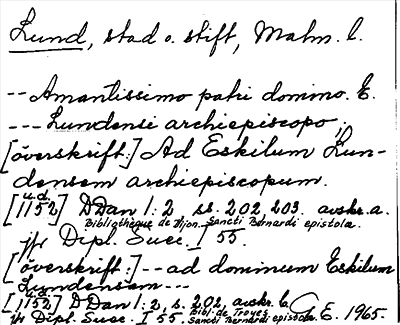 Lund, stad o. stift, Malm. l.
-- Amantissimo patri domino. E.
--- Lundensi archiepiscopo;
[överskrift:] Ad Eskilum Lun-
densem archiepiscopum.
u.d.
[1152] DDan 1:2 ss. 202 203. avskr. a.
Bibliothèque de Dijon. Sancti Bernardi epistola.
jfr Dipl. Suec. I 55.
[överskrift:] -- ad dominum Eskilum
Lundensem ---
u.d.
[1152] DDan 1:2, s. 202, avskr. b. C. E. 1965.
Bibl. de Troyes
jfr Dipl. Suec. I 55. Sancti Bernardi epistola.